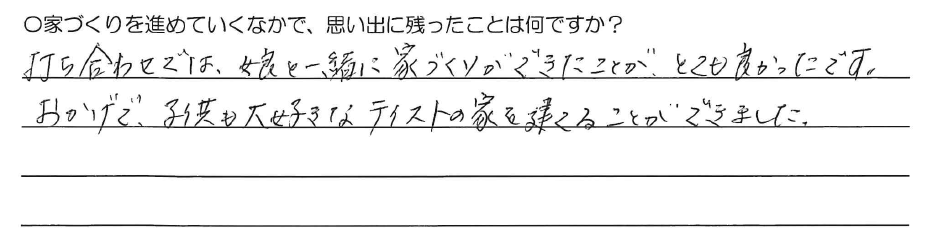 〇家づくりを進めていくなかで、思い出に残ったことは何ですか？
打ち合わせでは、娘と一緒に家づくりができたことが、とても良かったです。
おかげで、子供も大好きなテイストの家を建てることができました。